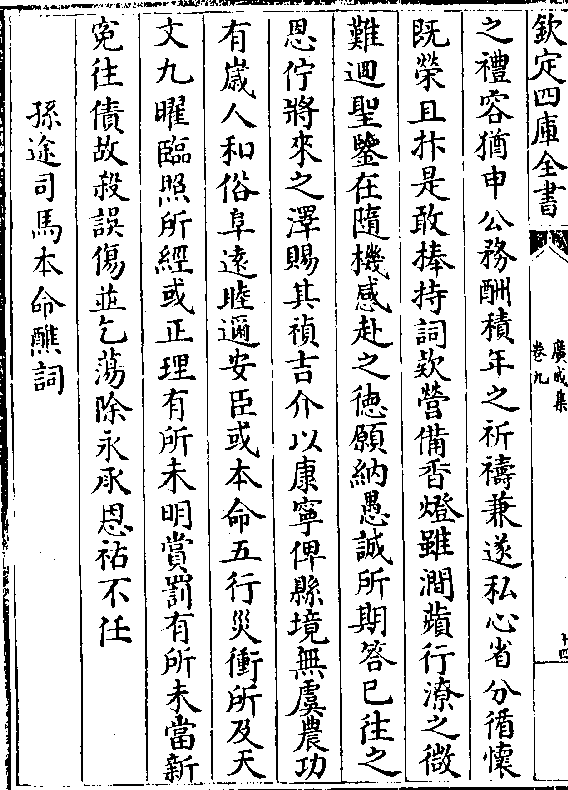 欽定四庫全書
廣成集
卷九
十四
之禮容猶申公務酬積年之祈禱兼遂私心省分循懷
既榮且抃是敢捧持詞欵營備香燈雖澗蘋行潦之微
難迴聖鑒在隨機感赴之徳願納愚誠所期答已往之
恩佇將來之澤賜其禎吉介以康寧俾縣境無虞農功
有嵗人和俗阜逺睦邇安臣或本命五行災衝所及天
文九曜臨照所經或正理有所未明賞罰有所未當新
寃往債故殺誤傷並乞蕩除永承恩祐不任
孫途司馬本命醮詞